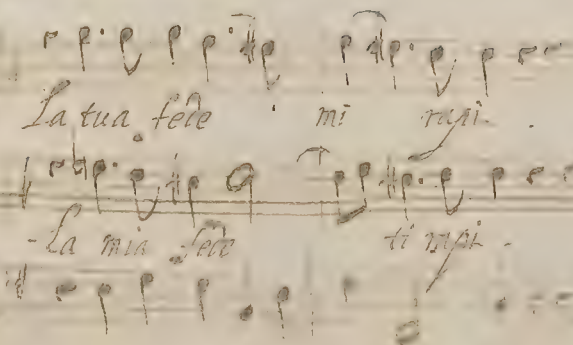 La tua fede mi rapi.
La mia fede ti rapi.